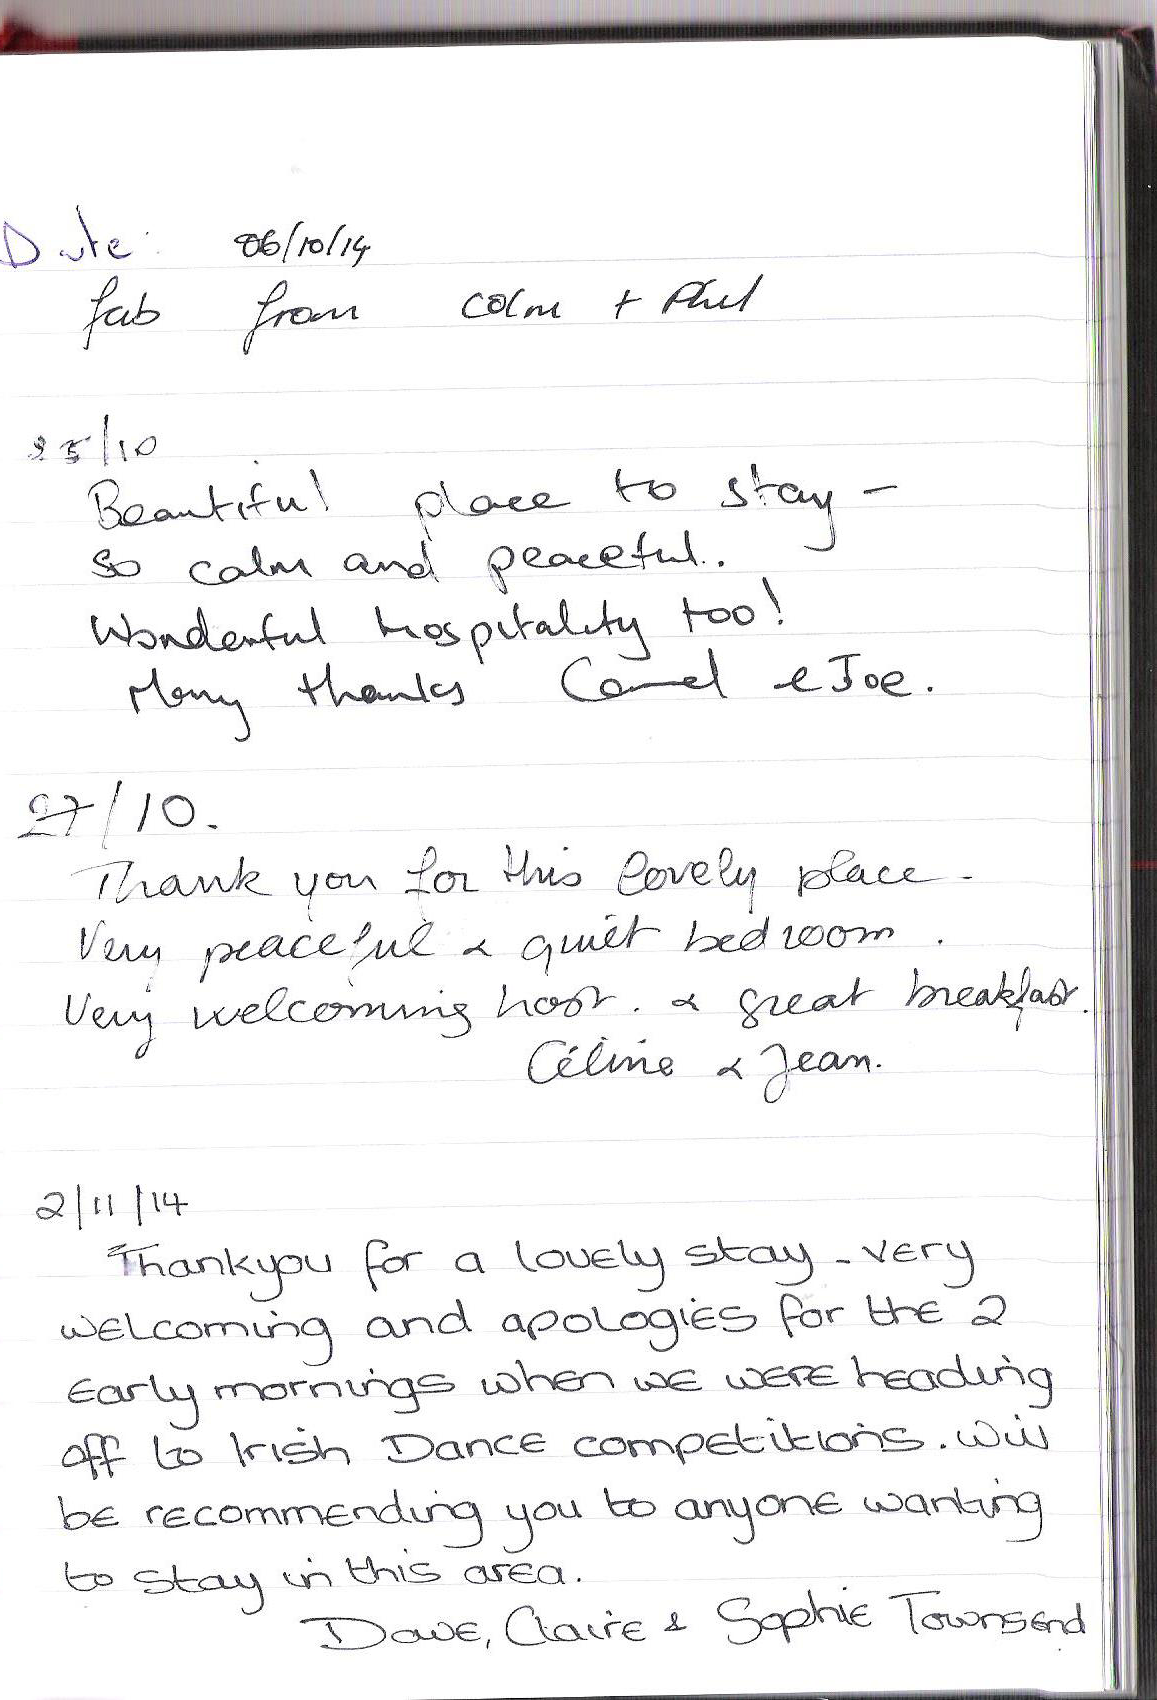 Date: 06/10/14
fab from Colm + Phil
25/10
Beautiful place to stay –
so calm and peaceful.
Wonderful hospitality too!
Many thanks & Joe.
27/10.
Thank you for this lovely place.
Very peaceful & quiet bedroom.
Very welcoming host. & great breakfast.
Céline & Jean.
2/11/14
Thankyou for a lovely stay - very
welcoming and apologies for the 2
early mornings when we were heading
off to Irish Dance competitions. Will
be recommending you to anyone wanting
to stay in this area.
Dave, Claire & Sophie Townsend